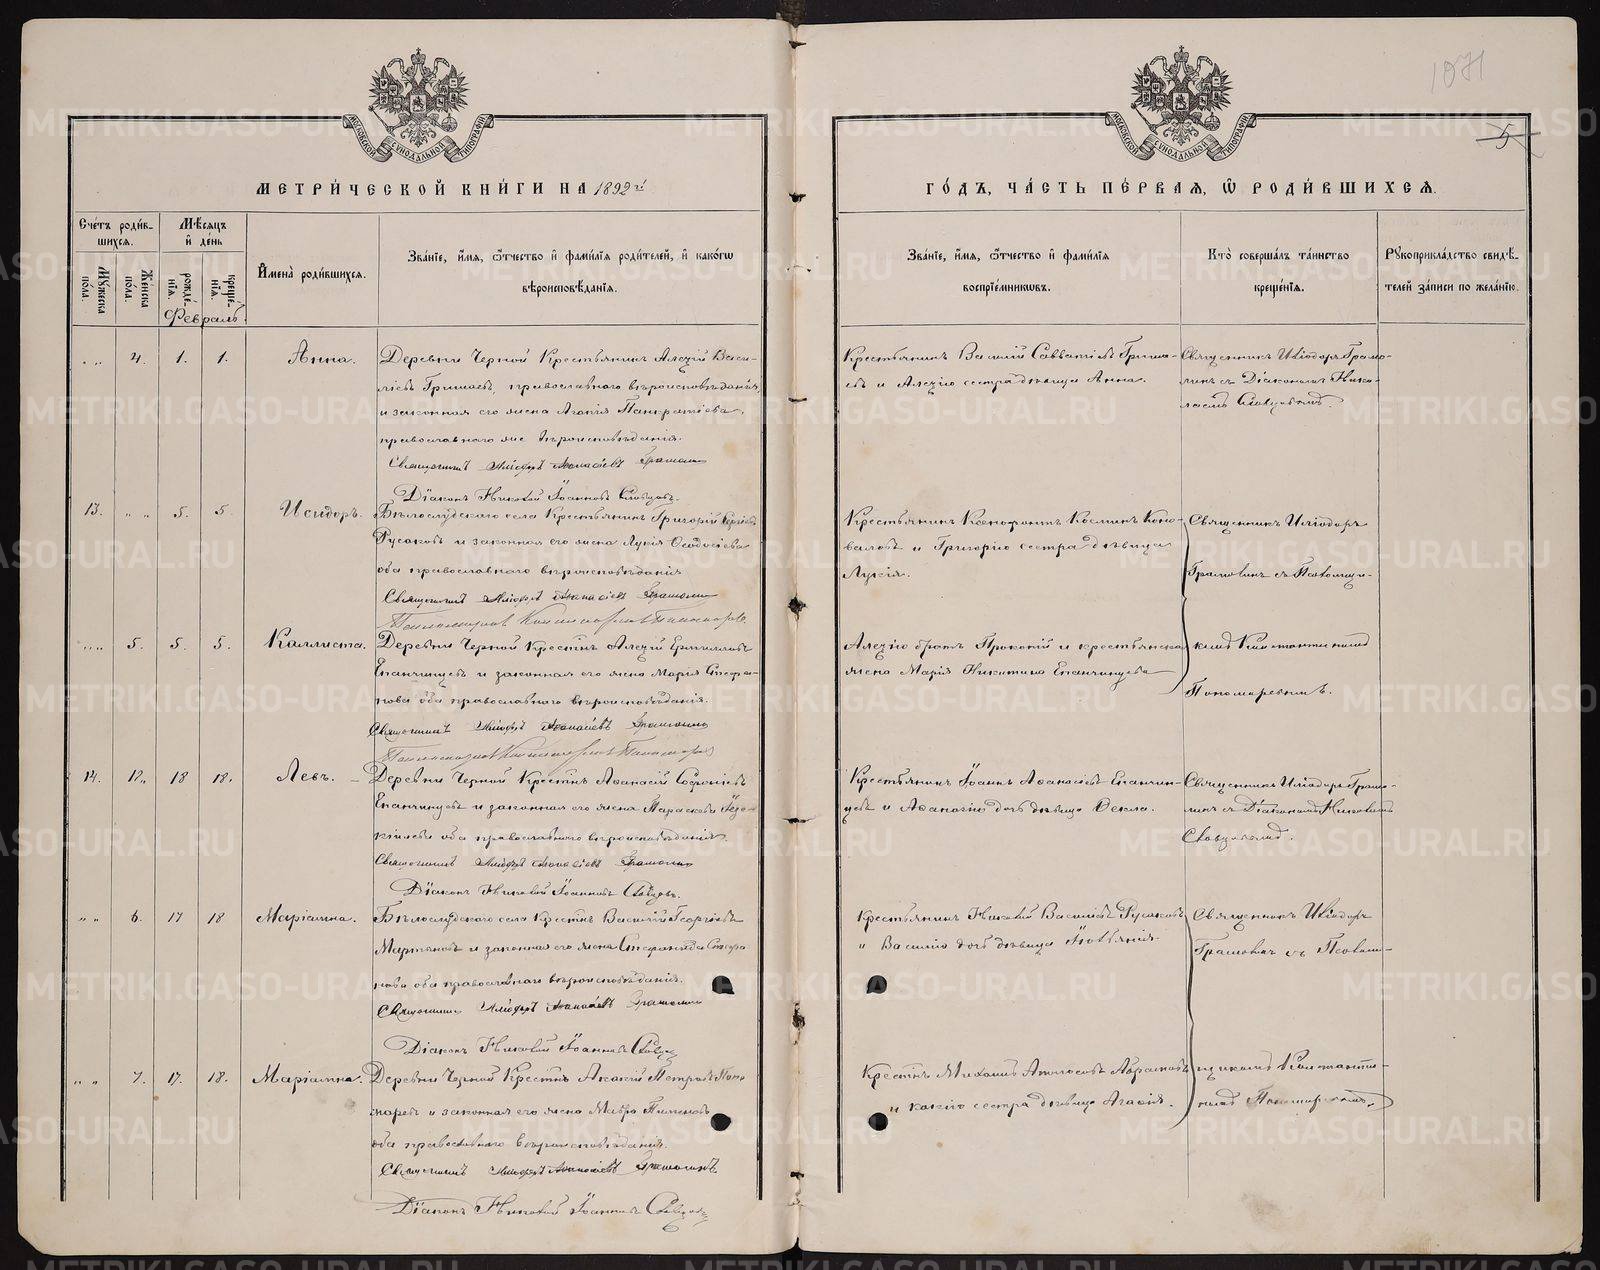 1071
5
МОСКОВСКОЙ СУНОДАЛЬНОЙ ТИПОГРАФІИ
МОСКОВСКОЙ СУНОДАЛЬНОЙ ТИПОГРАФІИ
МЕТРИ́ЧЕСКОЙ КНИ́ГИ НА 1892й
ГО́ДЪ, ЧА́СТЬ ПЕ́РВАЯ, Ѽ РОДИ́ВШИХСЯ.
Сче́тъ роди́в-
шихся.
Мꙋжеска по́ла.
Же́нска по́ла.
Мѣ́сяцъ и҆ де́нь
рожде́-
нїя.
креще́-
нїя.
И҆мена̀ роди́вшихся.
Зва́нїе, и҆́мя, ѻ҆́тчество и҆ фами́лїя роди́телей, и҆ како́гѡ
вѣроисповѣ́данїя.
Зва́нїе, и҆́мя, ѻ҆́тчество и҆ фами́лїя
воспрїе́мникѡвъ.
Кто̀ соверша́лъ та́инство
креще́нїя.
Рꙋкоприкла́дство свидѣ́-
телей за́писи по жела́нїю.
Февраль.
„ „ 4. 1. 1. Анна.
Деревни Черной Крестьянинъ Алезій Васи-
ліевъ Гришаевъ, православнаго вѣроисповѣданія,
и законная его жена Агапія Панкратіева,
православнаго же вѣроисповѣданія.
Священникъ Иліодоръ Аѳанасіевъ Грамолинъ
Діаконъ Николай Іоанновъ Словцовъ.
Крестьянинъ Василій Савватіевъ Гриша-
евъ и Алезію сестра дѣвица Анна.
Священникъ Иліодоръ Грамо-
линъ съ Діакономъ Нико-
лаемъ Словцовымъ.
13. „ „ 5. 5. Исидоръ.
Бѣлослудскаго села Крестьянинъ Григорій Сергіевъ
Русаковъ и законная его жена Лукія Ѳеодосіева
оба православнаго вѣроисповѣданія
Священникъ Иліодоръ Аѳанасіевъ Грамолинъ
Крестьянинъ Ксенофонтъ Косминъ Коно-
валовъ и Григорію сестра дѣвица
Лукія.
Священникъ Иліодоръ
Грамолинъ съ Псаломщи-
„ „ 5. 5. 5. Каллиста.
Деревни Черной Крестнъ Алезій Ермиловъ
Епанчинцевъ и законная его жена Марія Стефа-
нова оба православнаго вѣроисповѣданія.
Священникъ Иліодоръ Аѳанасіевъ Грамолинъ
Алезію братъ Прокопій и крестьянская
жена Марія Никитина Епанчинцева
комъ Константиномъ
Пономаревымъ.
14. „ „ 18 18. Левъ.
Деревни Черной Крестнъ Аѳанасій Софоніевъ
Епанчинцевъ и законная его жена Параскева Іезе-
кіилева оба православнаго вѣроисповѣданія.
Священникъ Иліодоръ Аѳанасіевъ Грамолинъ
Діаконъ Николай Іоанновъ Словцовъ.
Крестьянинъ Іоаннъ Аѳанасіевъ Епанчин-
цевъ и Аѳанасію дочь дѣвица Ѳекла.
Священникъ Иліодоръ Грамо-
линъ съ Діакономъ Николаемъ
Словцовымъ.
„ „ 6. 17 18 Маріамна.
Бѣлослудскаго села Крестнъ Василій Георгіевъ
Мартьяновъ и законная его жена Стефанида Стефа
нова оба православнаго вѣроисповѣданія.
Священникъ Иліодоръ Аѳанасіевъ Грамолинъ
Діаконъ Николай Іоанновъ Словцовъ
Крестьянинъ Николай Василіевъ Русаковъ
и Василію дочь дѣвица
Священникъ Иліодоръ
Грамолинъ съ Псалом-
„ „ 7. 17. 18. Маріамна.
Деревни Черной Крестнъ Акакій Петровъ Поно
маревъ и законная его жена Мавра Пименова
оба православнаго вѣроисповѣданія.
Священникъ Иліодоръ Аѳанасіевъ Грамолинъ
Діаконъ Николай Іоанновъ Словцовъ
Крестнъ Михаилъ Абрамовъ
и Акакію сестра дѣвица Агафія.
щикомъ Константи-
номъ Пономаревымъ.
METRIKI.GASO-URAL.RU